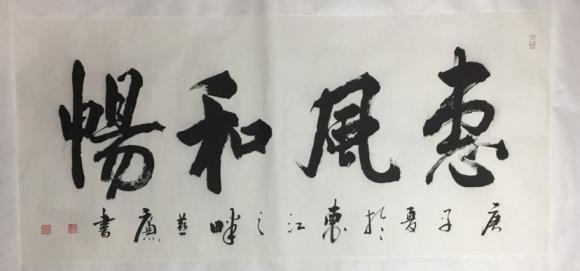 惠風和暢
庚子夏於東江之畔 廉書